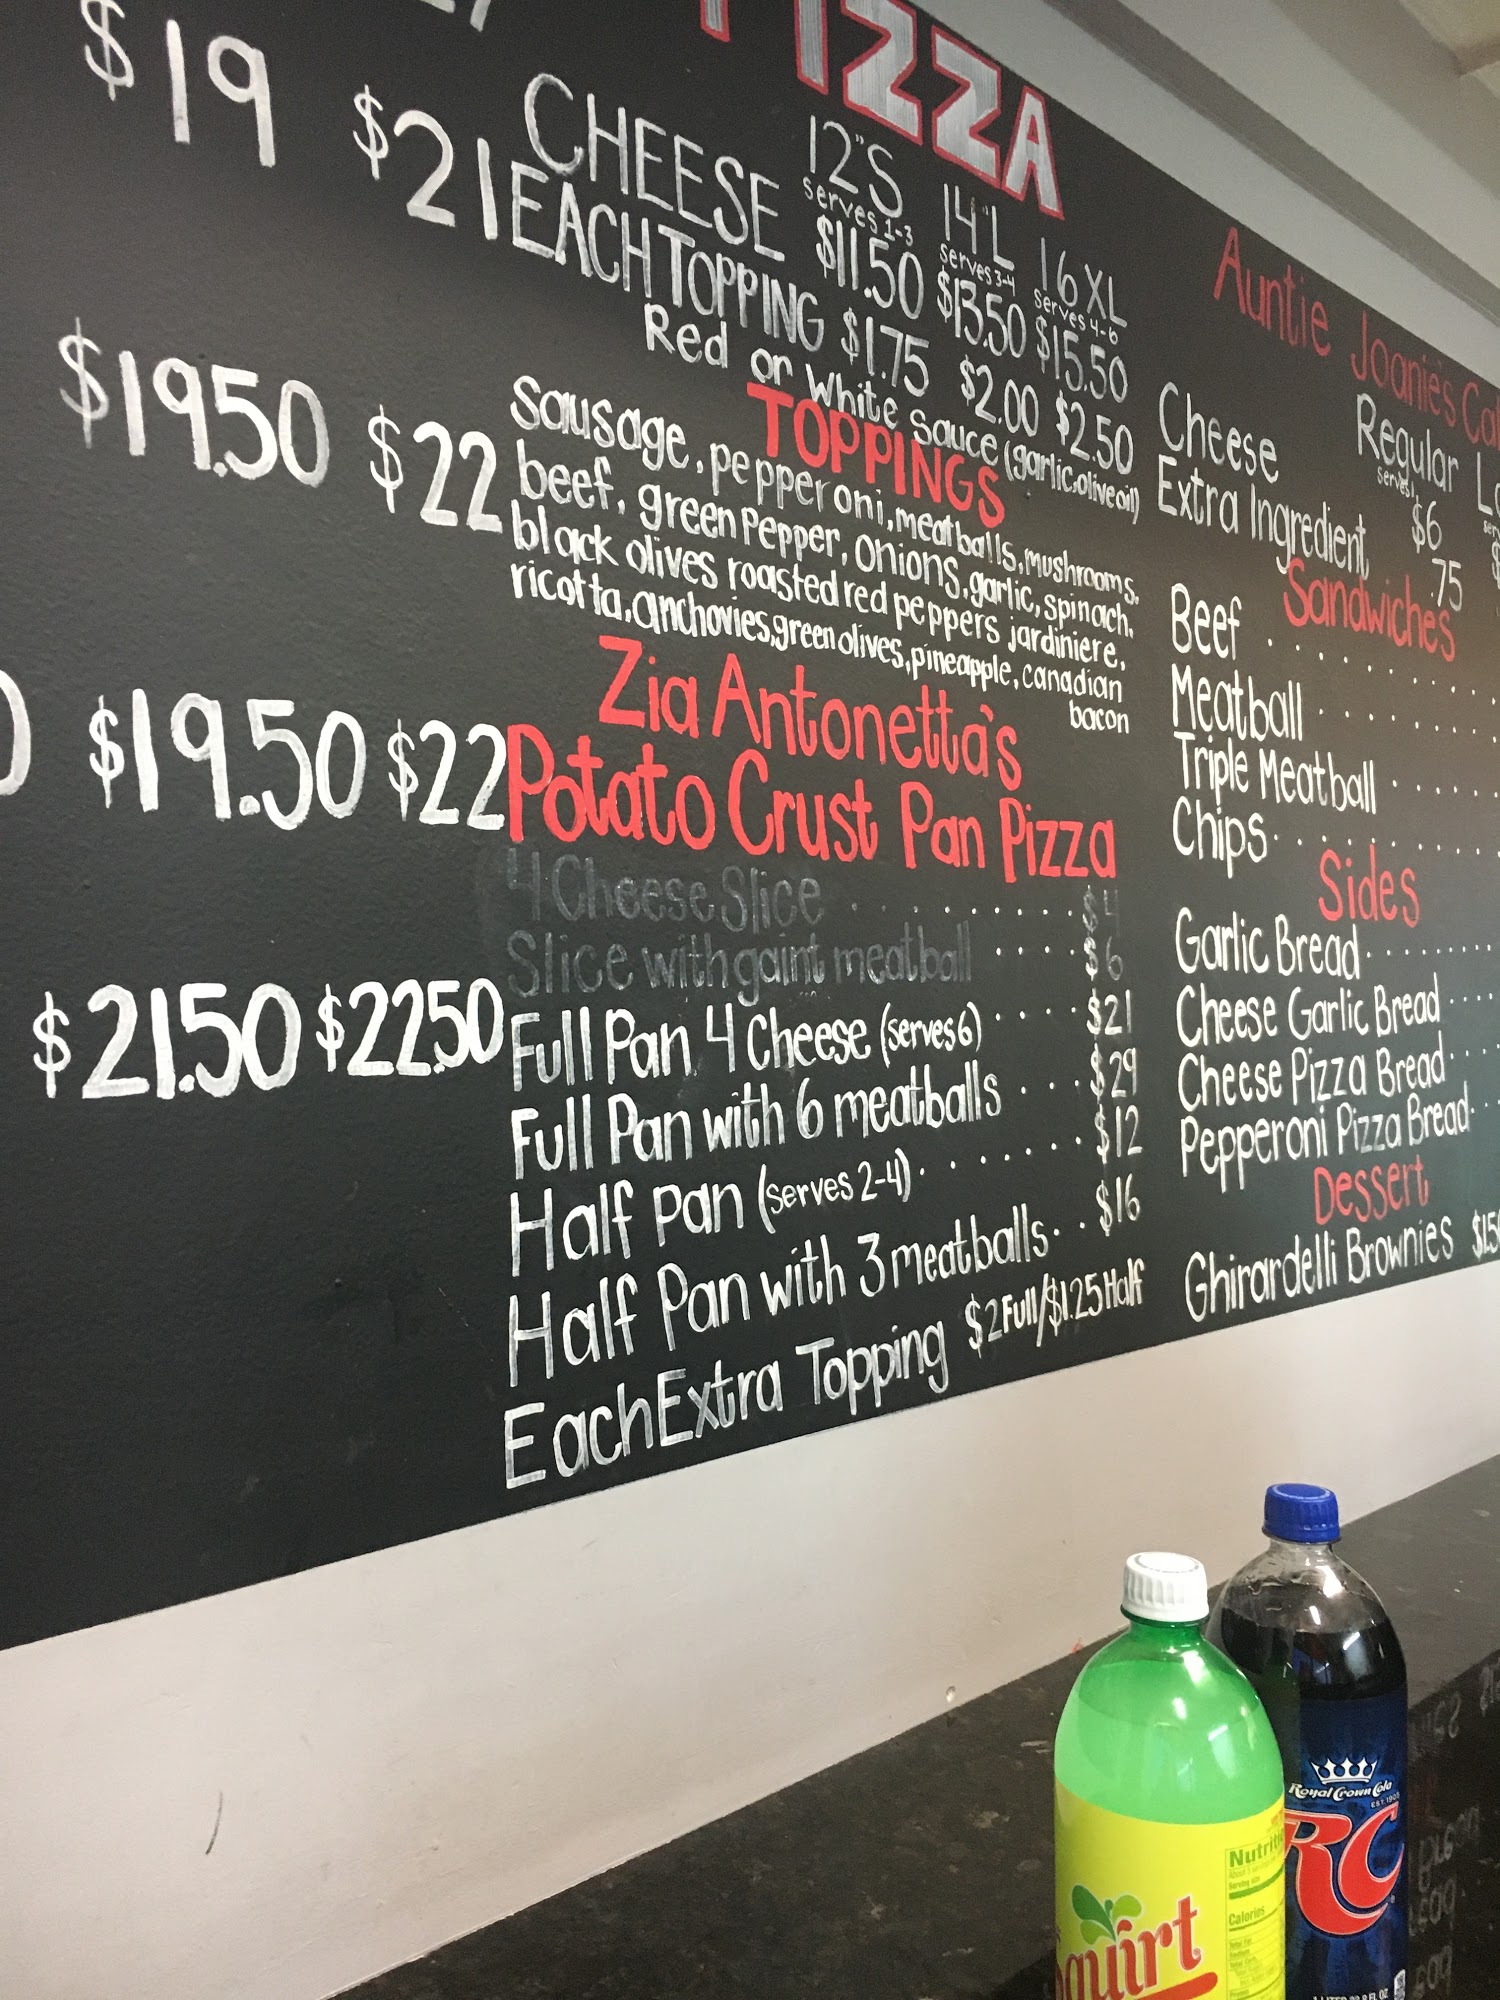 $19 $21
$19.50 $22
$19.50 $22
$21.50 $22.50
PIZZA
12"S 14"L 16 XL
serves 1-3 serves 3-4 serves 4-6
CHEESE $11.50 $13.50 $15.50
EACH TOPPING $1.75 $2.00 $2.50
Red or White Sauce (garlic, olive oil)
TOPPINGS
Sausage, pepperoni, meatballs, mushrooms,
beef, green Pepper, Onions, garlic, spinach,
black olives roasted red peppers jardiniere,
ricotta, anchovies, green olives, pineapple, canadian
bacon
Zia Antonetta's
Potato Crust Pan Pizza
4 Cheese Slice . . . . . . . . . $4
Slice with gaint meatball . . . . $6
Full Pan 4 Cheese (serves 6) . . . . $21
Full Pan with 6 meatballs . . . . $29
Half Pan (serves 2-4) . . . . . . . $12
Half Pan with 3 meatballs . . $16
Each Extra Topping $2 Full/$1.25 Half
Auntie Joanie's
Regular
serves 1
Cheese $6
Extra Ingredient .75
Sandwiches
Beef . . . . . . . .
Meatball . . . . . . . .
Triple Meatball . . . . .
Chips . . . . . . . . .
Sides
Garlic Bread . . . . . . .
Cheese Garlic Bread . . . .
Cheese Pizza Bread . . . .
Pepperoni Pizza Bread . .
Dessert
Ghirardelli Brownies $1.50
Royal Crown Cola
EST. 1905
RC
Squirt
Calories